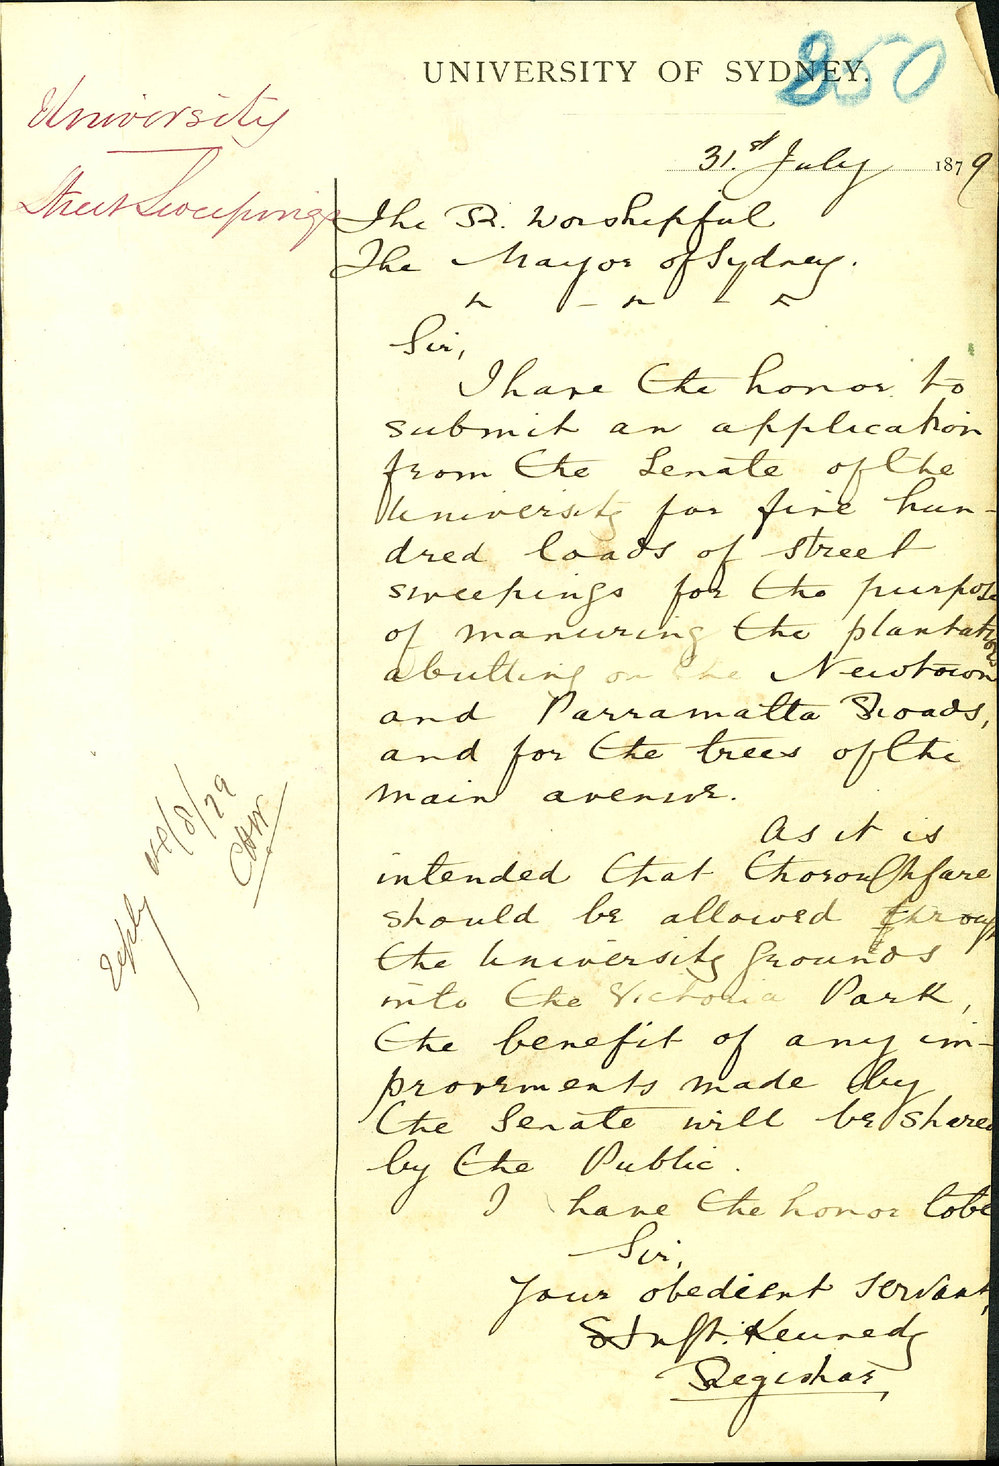 UNIVERSITY OF SYDNEY.
850
University
Street Sweepings
31.st July 1879
The R. Worshipful
The Mayor of Sydney.
Sir,
I have the honor to
submit an application
from the Senate of the
University for five hun-
dred loads of street
sweepings for the purpose
of manuring the plantations
abutting on the Newtown
and Parramatta Roads,
and for the trees of the
main avenue.
As it is
intended that thoroughfare
should be allowed through
the University grounds
into the Victoria Park,
the benefit of any im-
provements made by
the Senate will be shared
by the Public.
I have the honor to be
Sir,
Your obedient servant,
Kennedy
Registrar,
Reply 04/8/79